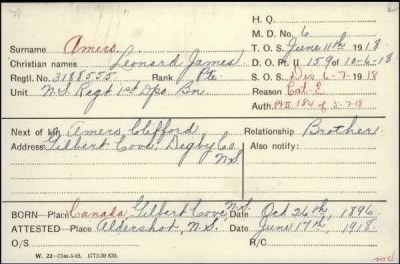 H. Q.
M. D. No. 6
Surname Amero. T. O. S. June 11th 1918
Christian names Leonard James D. O. Pt. II 159 of 10-6-18
Regtl. No. 3188555 Rank Pte. S. O. S. Dis 6-7-1918
Unit N.S. Regt 1st Dpo. Bn. Reason Cat. E
Auth. Pt II 184 of 3-7-18
Next of kin Amero, Clifford Relationship Brother
Address Gilbert Cove, Digby Co Also notify:
N.S
BORN—Place Canada, Gilbert Cove, N.S. Date Oct 26th, 1896
ATTESTED—Place Aldershot, N.S. Date June 17th, 1918
O/S R/C